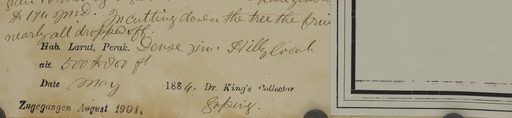 In cutting down the tree the frui
nearly all dropped off.
Hab. Larut, Perak. Dense Hilly locali
alt. 500 to 800 ft
Date May 1884. Dr. King's Collector
Zugegangen August 1901.